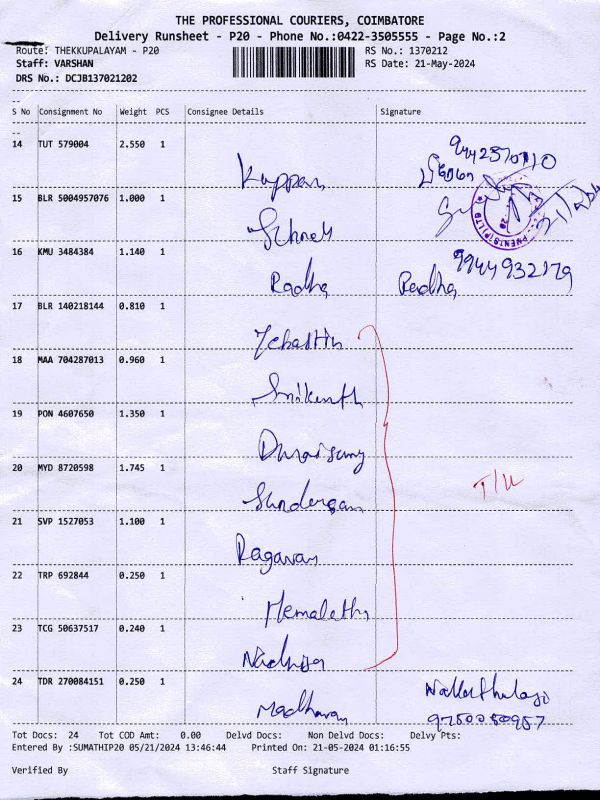 THE PROFESSIONAL COURIERS, COIMBATORE
Delivery Runsheet - P20 - Phone No.:0422-3505555 - Page No.:2
Route: THEKKUPALAYAM - P20 RS No.: 1370212
Staff: VARSHAN RS Date: 21-May-2024
DRS No.: DCJB137021202
S No Consignment No Weight PCS Consignee Details Signature
14 TUT 579004 2.550 1 Kuppan
15 BLR 5004957076 1.000 1
PMENTS(P)LTD
16 KMU 3484384 1.140 1 Radha Radha 9944932179
17 BLR 140218144 0.810 1
18 MAA 704287013 0.960 1 Srikanth
19 PON 4607650 1.350 1 Duraisamy
20 MYD 8720598 1.745 1
T/L
21 SVP 1527053 1.100 1 Ragavan
22 TRP 692844 0.250 1 Hemalatha
23 TCG 50637517 0.240 1
24 TDR 270084151 0.250 1 Madhavan
Tot Docs: 24 Tot COD Amt: 0.00 Delvd Docs: Non Delvd Docs: Delvy Pts:
Entered By :SUMATHIP20 05/21/2024 13:46:44 Printed On: 21-05-2024 01:16:55
Verified By Staff Signature